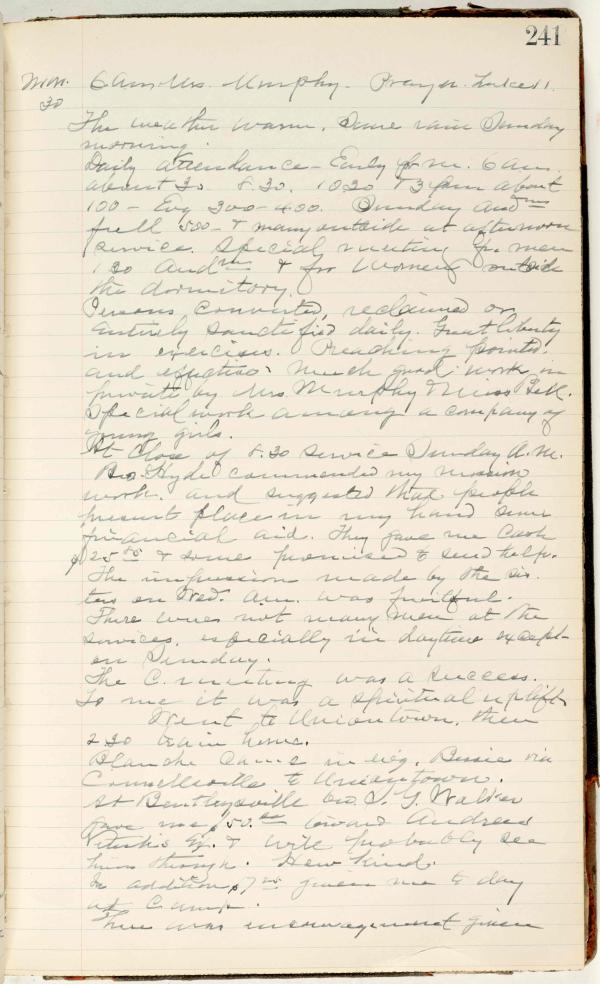 241
Mon. 6 am Mrs. Murphy. Prayer. Luke 11.
30
The weather warm. Some rain Sunday
morning.
Daily attendance - Early pr. m. 6 am.
about 30. 8.30. 10.30 & 3 pm about
100 - Evg 300-400. Sunday Aud ms
full 500 - & many outside at afternoon
service. Special meeting for men
1 30 Aud m & for Women outside
the dormitory.
Persons converted, reclaimed or
entirely sanctified daily. Great liberty
in exercises. Preaching pointed
and effective. Much good work in
private by Mrs. Murphy & Miss
Special work among a company of
young girls.
At close of 8.30 service Sunday A.M.
Bro. Hyde commended my mission
work. and suggested that people
present place in my hand some
financial aid. They gave me cash
$25 00 & some promised to send help.
The impression made by the sis-
ters on Wed. am. was fruitful.
There were not many men at the
services, especially in daytime except
on Sunday.
The C. meeting was a success.
To me it was a spiritual uplift
Went to Uniontown, then
2 30 train home.
Blanche came in evg. Bessie via
Connellsville to Uniontown.
At Bentleysville bro. S. G. Walker
gave me $50. 00 toward Andrew
& will probably see
him through. How kind.
In addition $7 given me to day
at Camp.
There was encouragement given